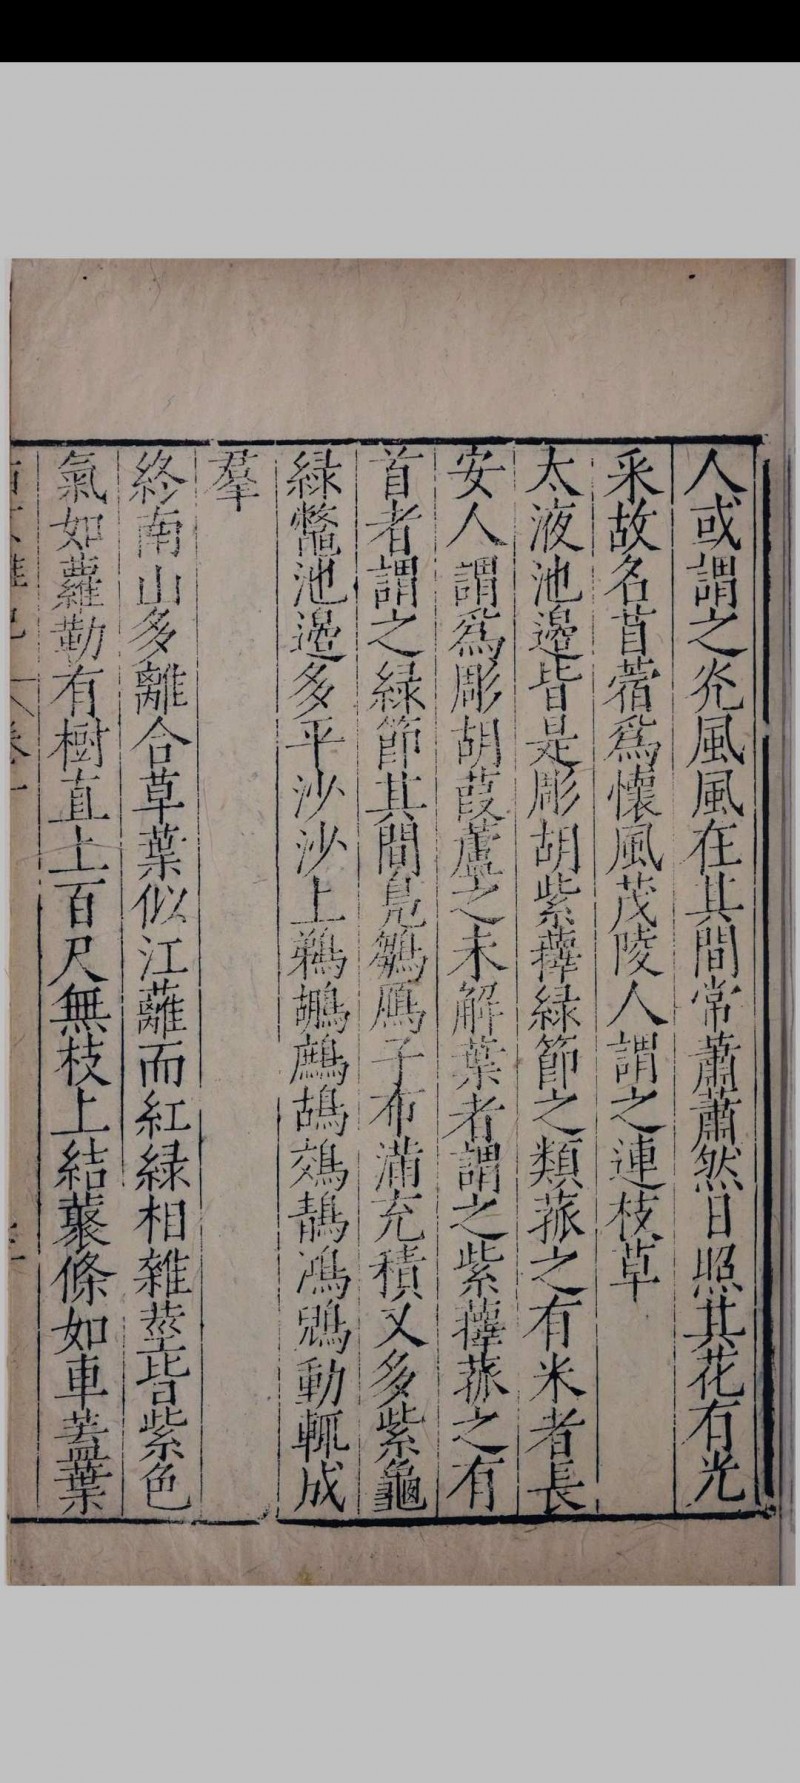 人或謂之光風風在其間常蕭蕭然日照其花有光
采故名苜蓿爲懷風茂陵人謂之連枝草
太液池邊皆是彫胡紫蘀綠節之類菰之有米者長
安人謂爲彫胡葭蘆之未解葉者謂之紫蘀菰之有
首者謂之綠節其間鳧雛鴈子布滿充積又多紫龜
綠鼈池邊多平沙沙上鵜鶘鷓鴣鵁鶄鴻鶂動輒成
羣
終南山多離合草葉似江蘺而紅綠相雜莖皆紫色
氣如蘿勒有樹直上百尺無枝上結藂條如車蓋葉